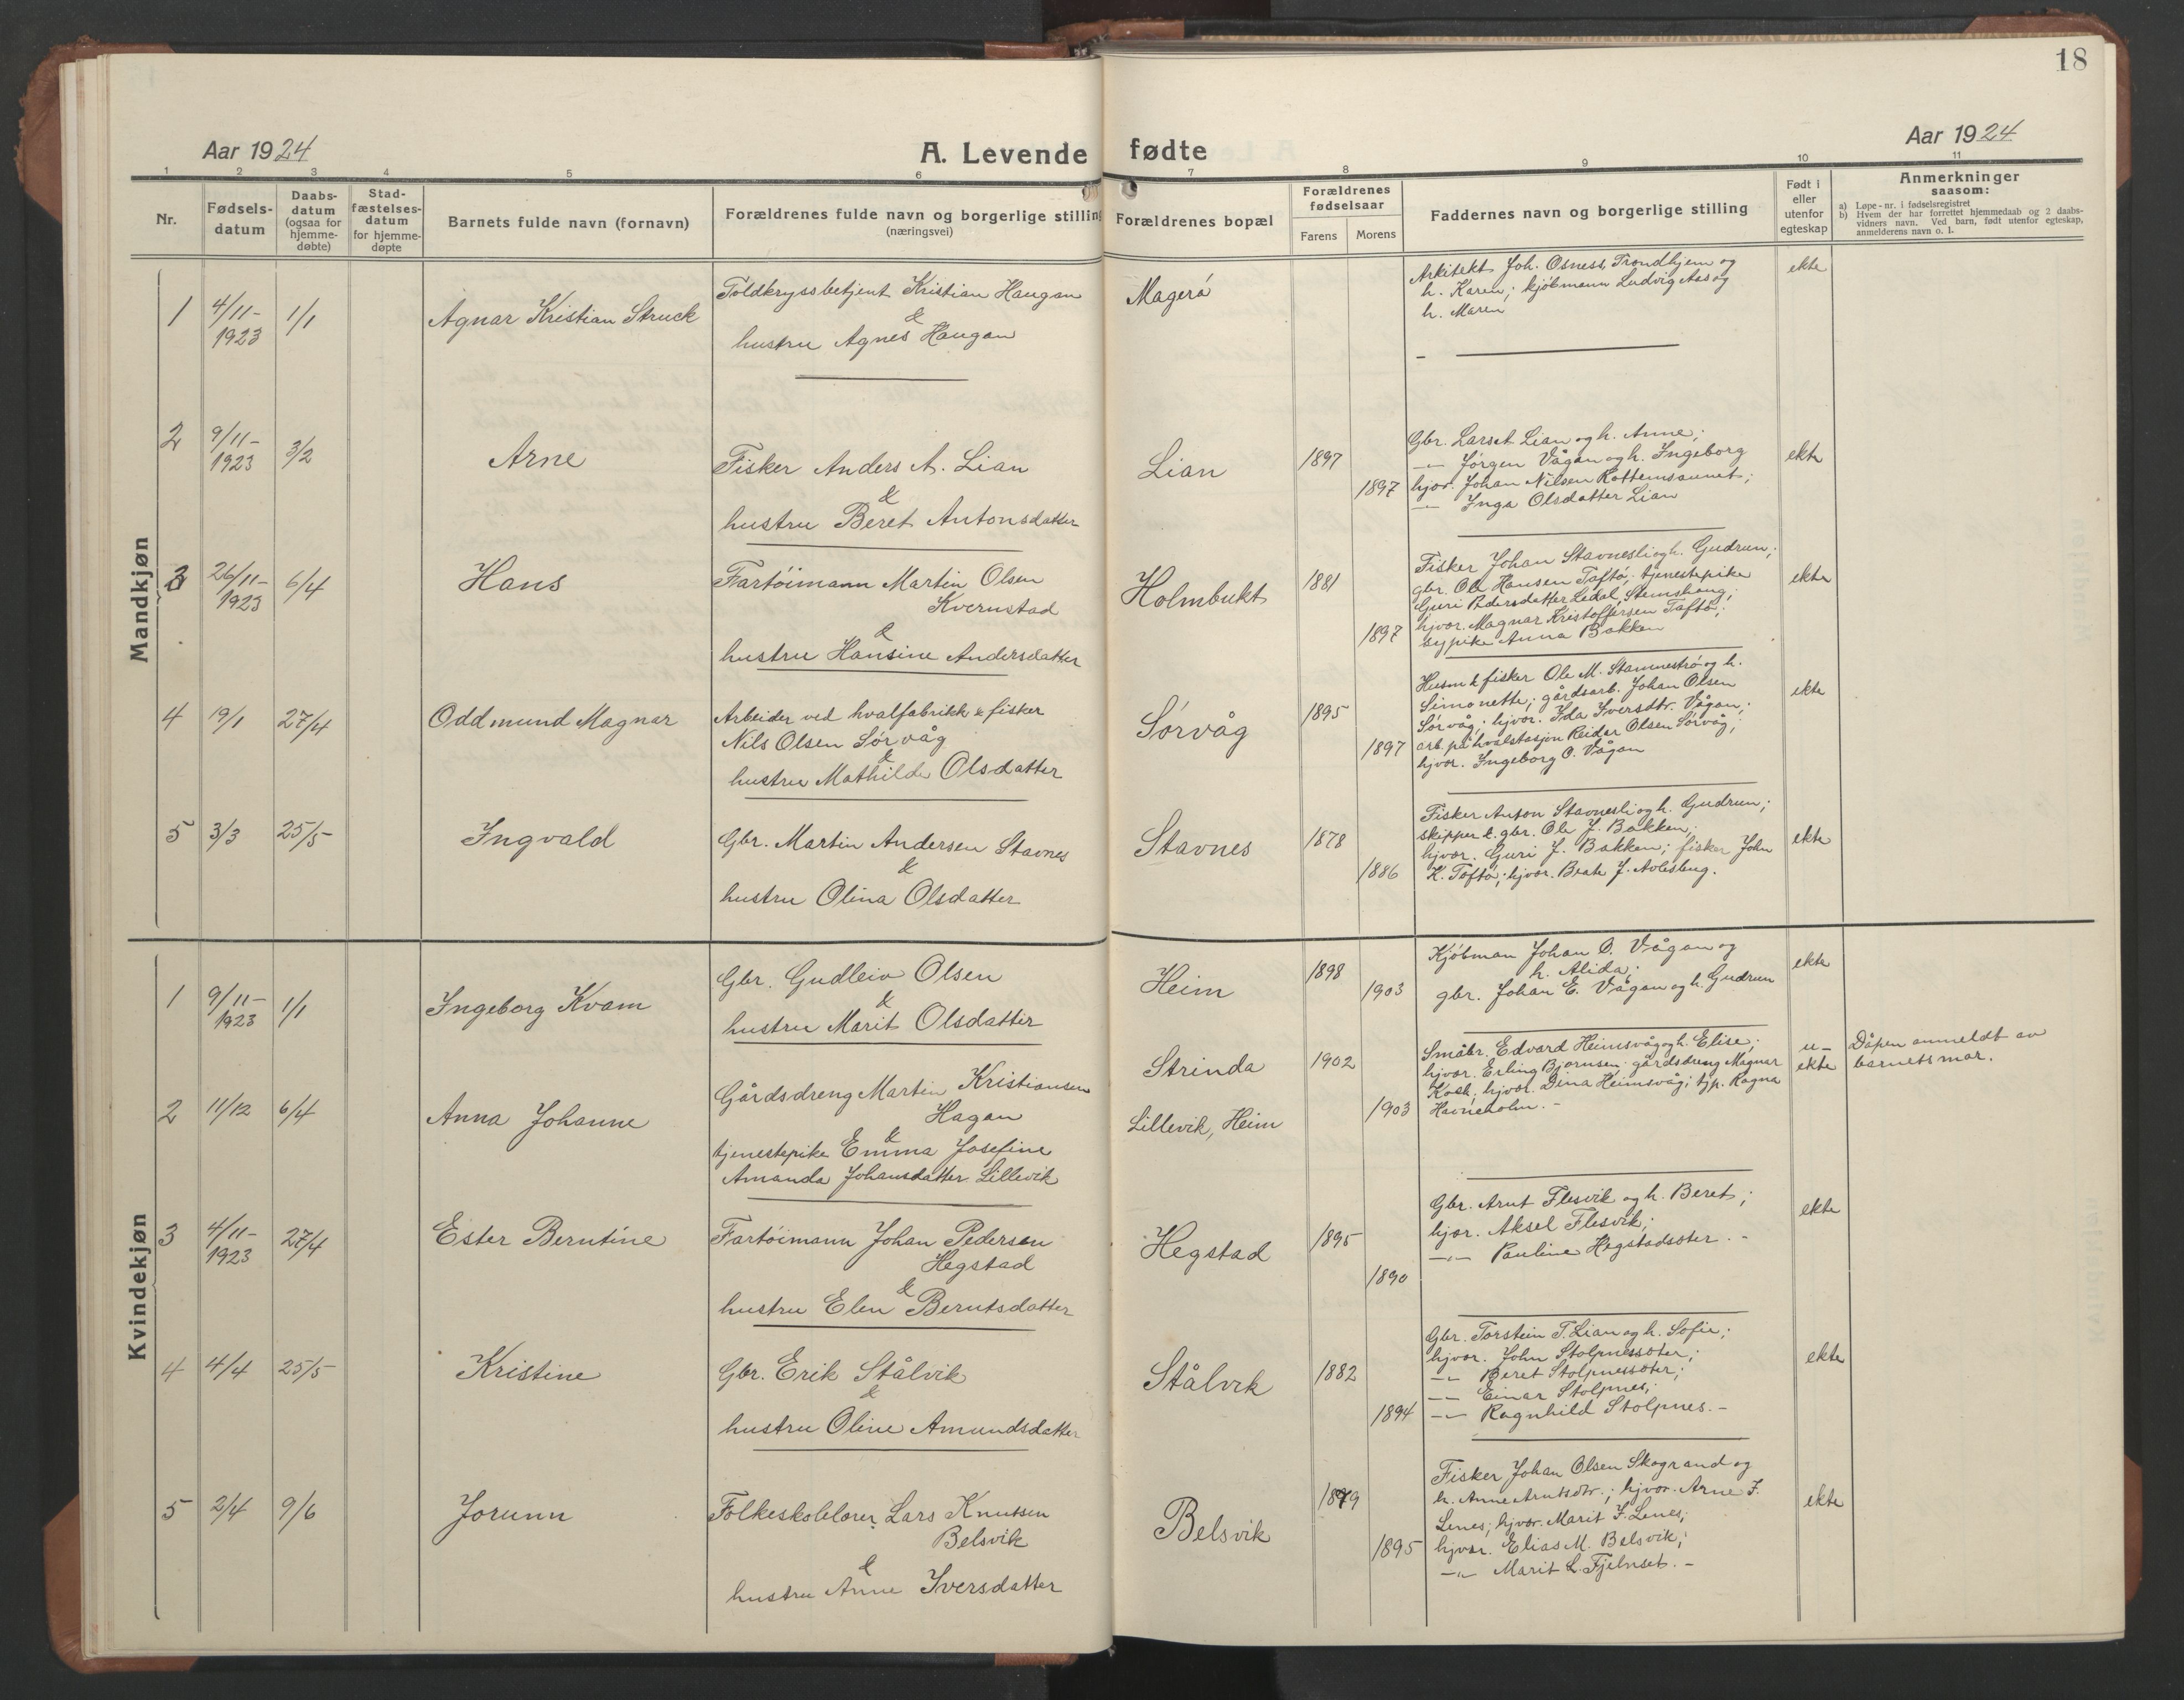 18
Aar 1924
A. Levende fødte
Aar 1924
1 2 3 4 5 6 7 8 9 10 11
Nr.
Fødsels-
datum
Daabs-
datum
(ogsaa for
hjemme-
døbte)
Stad-
fæstelses-
datum
for hjemme-
døpte
Barnets fulde navn (fornavn)
Forældrenes fulde navn og borgerlige stilling
(næringsvei)
Forældrenes bopæl
Forældrenes
fødselsaar
Farens
Morens
Faddernes navn og borgerlige stilling
Født i
eller
utenfor
egteskap
Anmerkninger
saasom:
a) Løpe-nr. i fødselsregistret
b) Hvem der har forrettet hjemmedaab og 2 daabs-
vidners navn. Ved barn, født utenfor egteskap,
anmelderens navn o. l.
Mandkjøn
1
4/11-
1923
1/1
Agnar Kristian Struck
Toldkryssbetjent Kristian Haugan
&
hustru Agnes Haugan
Magerö
Arkitekt Joh. Osness, Trondhjem og
h. Karen; kjöbmann Ludvig Aas og
h. Maren
ekte
2
9/11-
1923
3/2
Arne
Fisker Anders A. Lian
&
hustru Beret Antonsdatter
Lian
1897
1897
Gbr. Lars Lian og h. Anne;
-"- Jörgen Vågan og h. Ingeborg
hjvr. Johan Nilsen Rottemsaunet;
-"- Inga Olsdatter Lian
ekte
3
26/11-
1923
6/4
Hans
Fartöimann Martin Olsen
Kvernstad
&
hustru Hansine Andersdatter
Holmbukt
1881
1897
Fisker Johan Stavnesli og h. Gudrun;
gbr. Ole Hansen Taftö; tjenestepike
Guri Pedersdatter Ledal, Stemshaug;
hjvr. Magnar Kristoffersen Taftö;
sypike Anna Bakken
ekte
4
19/1
27/4
Oddmund Magnar
Arbeider ved hvalfabrikk & fisker
Nils Olsen Sörvåg
&
hustru Mathilde Olsdatter
Sörvåg
1895
1897
Husm & fisker Ole M. Stamneströ og h.
Simonette; gårdsarb. Johan Olsen
Sörvåg; hjvor. Ida Iversdtr. Vågan;
arb. på hvalstasjon Reidar Olsen Sörvåg;
hjvor. Ingeborg O. Vågan
ekte
5
3/3
25/5
Ingvald
Gbr. Martin Andersen Stavnes
&
hustru Olina Olsdatter
Stavnes
1878
1886
Fisker Anton Stavnesli og h. Gudrun;
skipper & gbr. Ole J. Bakken;
hjvor. Guri J. Bakken; fisker John
K. Taftö; hjvor. Beate J.
ekte
Kvindekjøn
1
9/11-
1923
1/1
Ingeborg Kvam
Gbr. Gudleiv Olsen
&
hustru Marit Olsdatter
Heim
1898
1903
Kjöbman Johan O. Vågan og
h. Alida;
gbr. Johan E. Vågan og h. Gudrun
ekte
2
11/12
6/4
Anna Johanne
Gårdsdreng Martin Kristiansen
Hagan
&
tjenestepike Emma Josefine
Amanda Johansdatter Lillevik
Strinda
Lillevik, Heim
1902
1903
Småbr. Edvard Heimsvåg og h. Elise;
hjvor. Erling Bjørnsen; gårdsdreng Magnar
Kolh; hjvor. Dina Heimsvåg; tjp. Ragna
Havneholm. -
u-
ekte
Dåpen anmeldt av
barnets mor.
3
4/11-
1923
27/4
Ester Berntine
Fartöimann Johan Pedersen
Hegstad
&
hustru Elen Berntsdatter
Hegstad
1895
1890
Gbr. Arnt Flesvik og h. Beret;
hjor. Aksel Flesvik;
-"- Pauline Hegstadsöter. -
ekte
4
4/4
25/5
Kristine
Gbr. Erik Stålvik
&
hustru Oline Amundsdatter
Stålvik
1882
1894
Gbr. Torstein T. Lian og h. Sofie;
hjvor. John Stolpnessöter;
-"- Beret Stolpnessöter;
-"- Einar Stolpnes;
-"- Ragnhild Stolpnes. -
ekte
5
2/4
9/6
Jorunn
Folkeskolelærer Lars Knutsen
Belsvik
&
hustru Anne Iversdatter
Belsvik
1879
1895
Fisker Johan Olsen Skogrand og
h. Anne Arntsdtr.; hjvor. Arne J.
Lenes; hjvor. Marit J. Lenes;
hjvor. Elias M. Belsvik;
-"- Marit L. Fjelnset. -
ekte